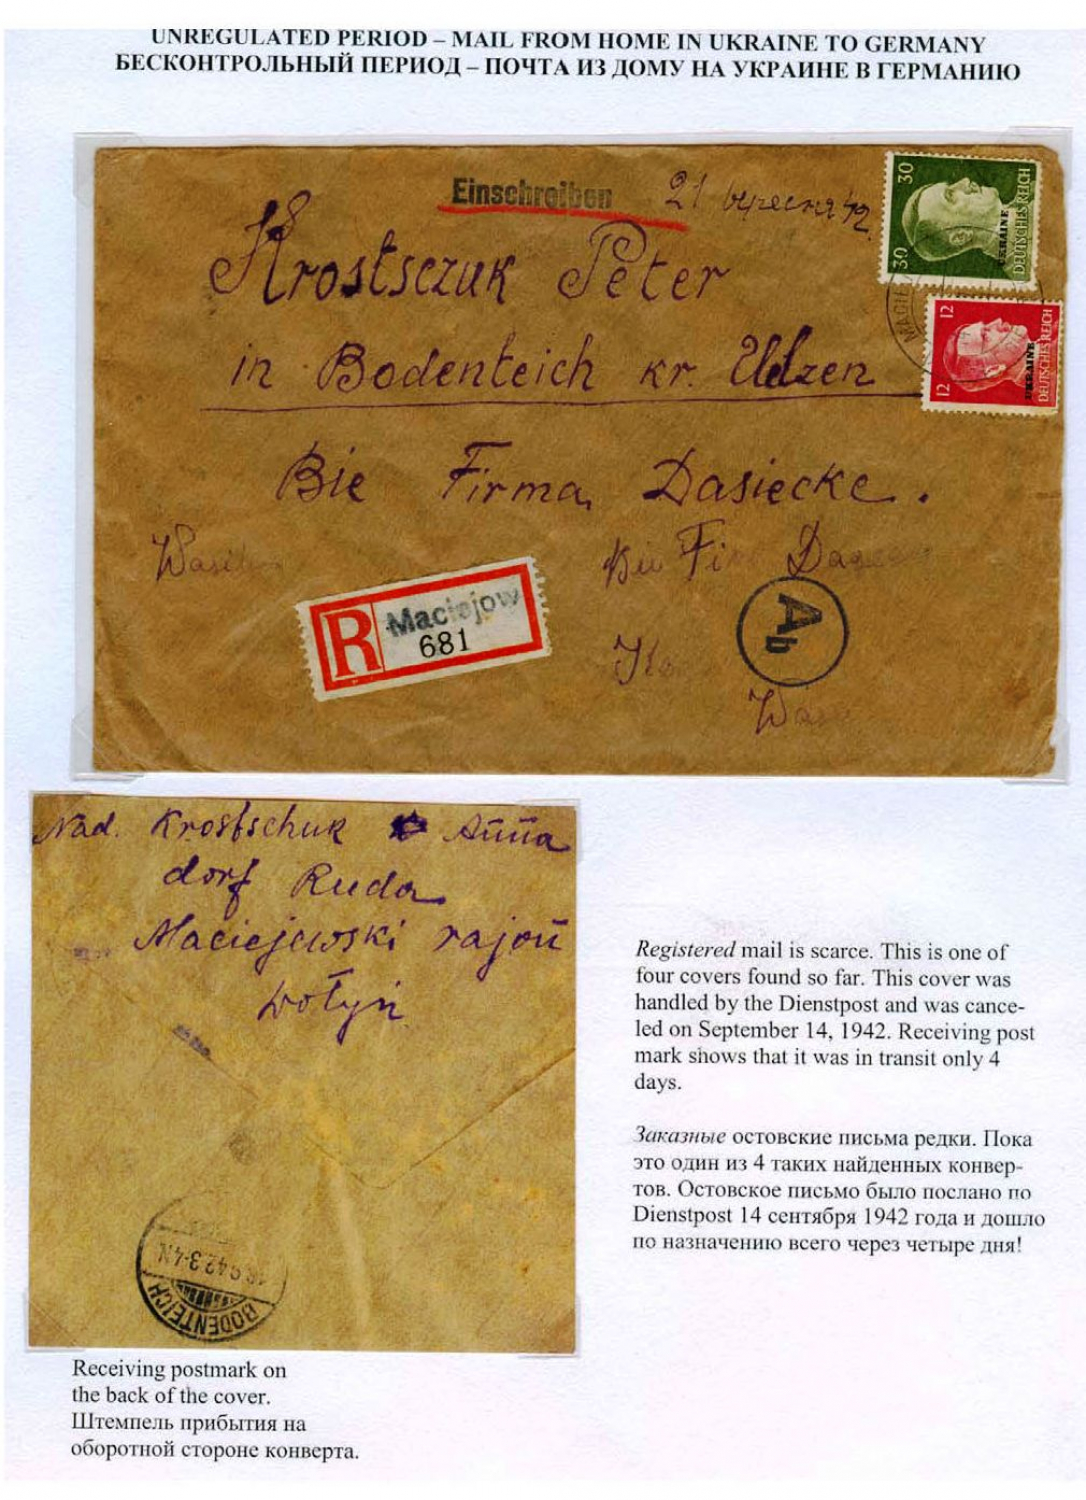 UNREGULATED PERIOD – MAIL FROM HOME IN UKRAINE TO GERMANY
БЕСКОНТРОЛЬНЫЙ ПЕРИОД – ПОЧТА ИЗ ДОМУ НА УКРАИНЕ В ГЕРМАНИЮ
Einschreiben
21 вересня 42.
30 30
UKRAINE
DEUTSCHES REICH
Krostsczuk Peter
12 12
UKRAINE
DEUTSCHES REICH
in Bodenteich kr. Uelzen
Bie Firma Dasiecke.
R Maciejow
681
Ab
Nad. Krostschuk Anna
dorf Ruda
Maciejewski rajon
Wołyń
BODENTEICH
Registered mail is scarce. This is one of
four covers found so far. This cover was
handled by the Dienstpost and was cance-
led on September 14, 1942. Receiving post
mark shows that it was in transit only 4
days.
Заказные остовские письма редки. Пока
это один из 4 таких найденных конвер-
тов. Остовское письмо было послано по
Dienstpost 14 сентября 1942 года и дошло
по назначению всего через четыре дня!
Receiving postmark on
the back of the cover.
Штемпель прибытия на
оборотной стороне конверта.